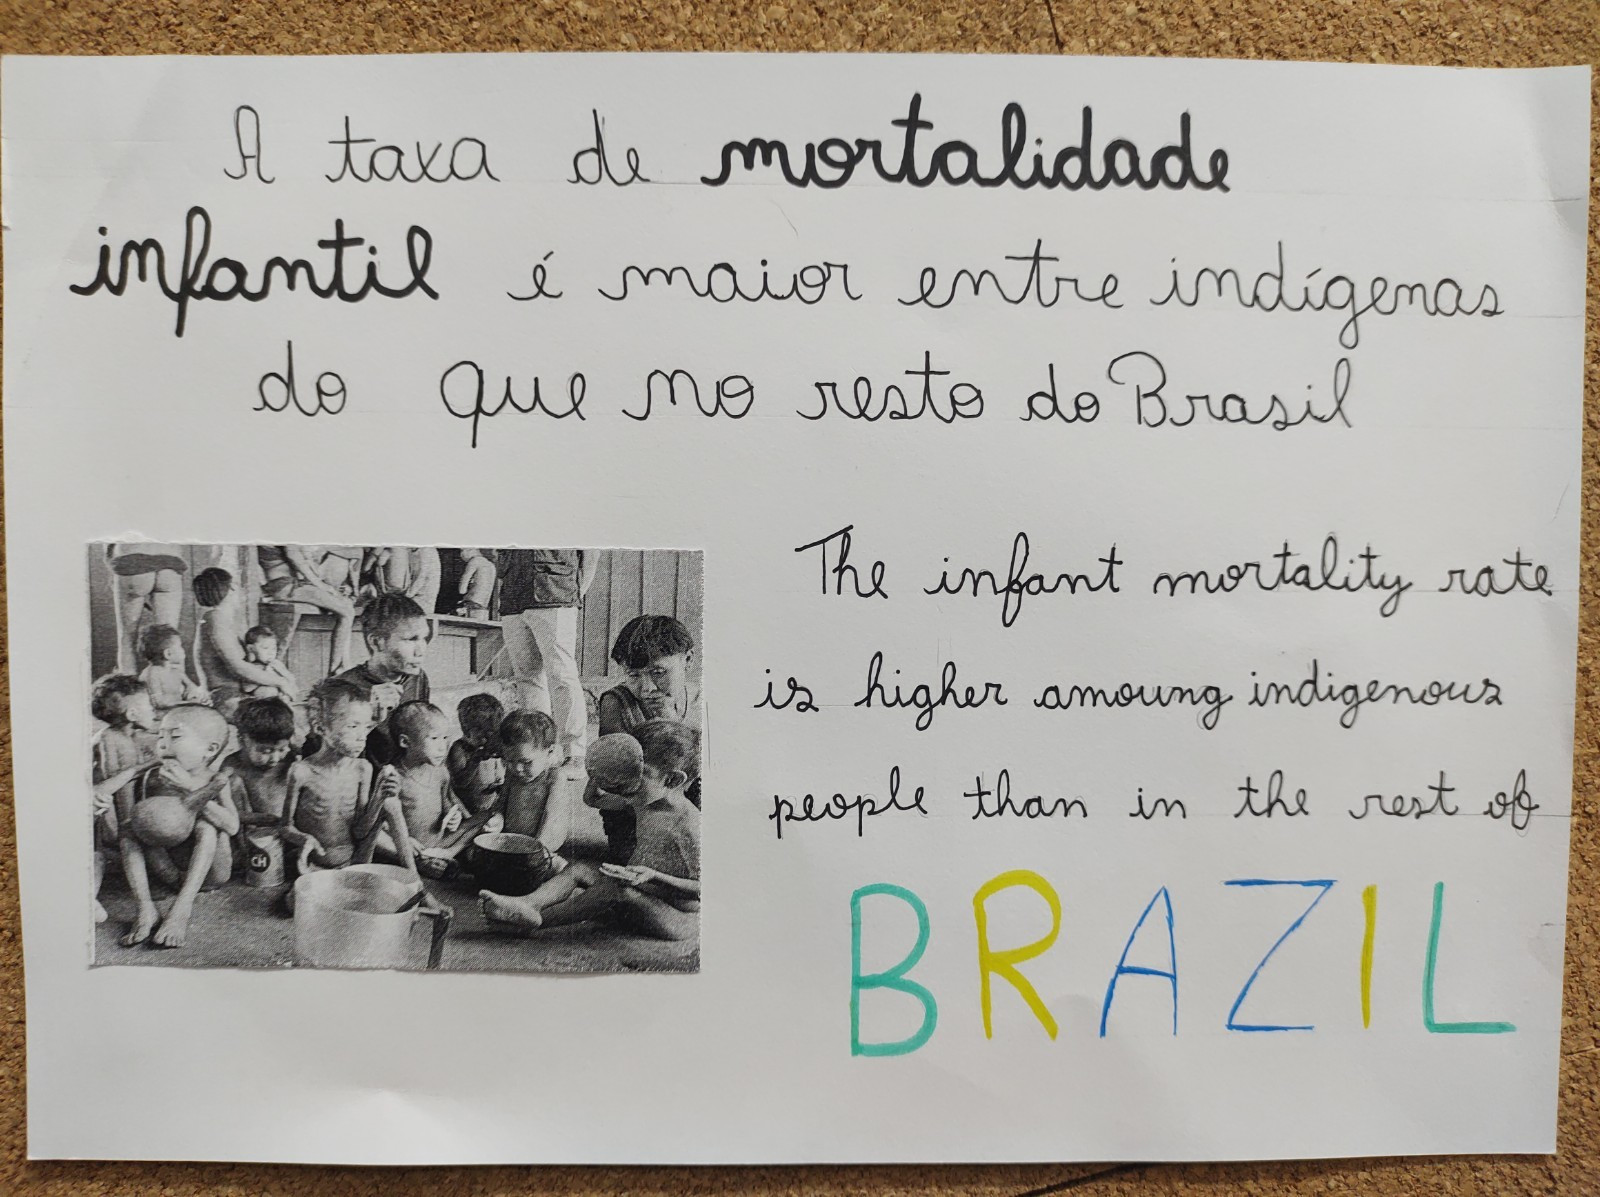 A taxa de mortalidade
infantil é maior entre indígenas
do que no resto do Brasil
The infant mortality rate
is higher amoung indigenous
people than in the rest of
BRAZIL
CH